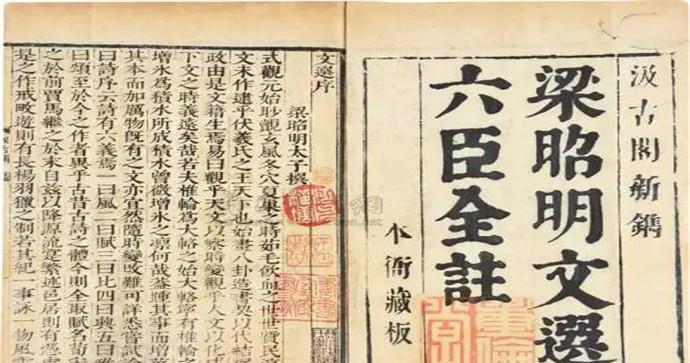 汲古閣新鐫
梁昭明文選
六臣全註
本衙藏板
文選序
梁昭明太子撰
式觀元始眇覿玄風冬穴夏巢之時茹毛飲血之世世質民
文未作逮乎伏羲氏之王天下也始畫八卦造書契以代結
政由是文籍生焉易曰觀乎天文以察時變觀乎人文以化
下文之時義遠矣哉若夫椎輪爲大輅之始大輅寧有椎輪
增冰爲積水所成積水曾微增冰之凜何哉蓋踵其事而增
其本而加厲物旣有之文亦宜然隨時變改難可詳悉嘗試
曰詩序云詩有六義焉一曰風二曰賦三曰比四曰興五曰
曰頌至於今之作者異乎古昔古詩之體今則全取賦名荀
之於前賈馬繼之於末自茲以降源流寔繁述邑居則有憑
是之作戒畋遊則有長楊羽獵之制若其紀一事詠一物風